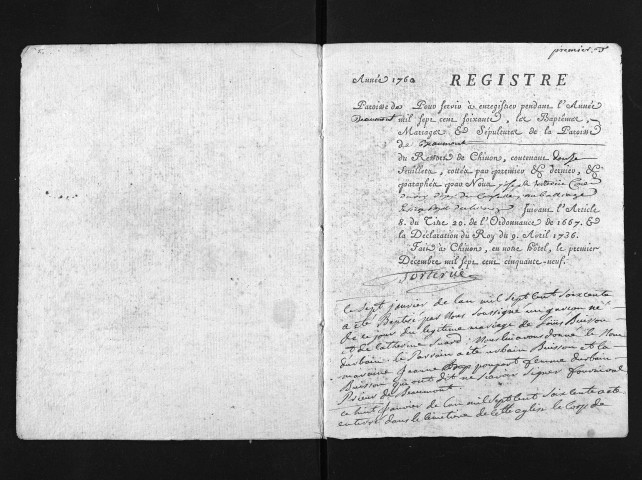 premier
Année 1760 REGISTRE
Paroisse de Pour servir à enregistrer pendant l'Année
Beaumont mil sept cent soixante, les Baptêmes,
Mariages & Sépultures de la Paroisse
de Beaumont
du Ressort de Chinon, contenant douze
feuillets, cottés par premier & dernier, &
paraphés par Nous
Suivant l'Article
8. du Titre 20. de l'Ordonnance de 1667. &
la Déclaration du Roy du 9. Avril 1736.
Fait à Chinon, en notre hôtel, le premier
Décembre mil sept cent cinquante-neuf.
Le sept janvier de lan mil sept cent soixante
a été Baptisé par Nous soussigné un garçon né
de ce jour du legitime mariage de Buisson
et de Catherine Suard. Nous lui avons donné le Nom
durbain. le Parrain a été urbain Buisson et la
maraine jeanne poupart femme durbain
Buisson qui ont dit ne scavoir signer
Prieur de Beaumont.
Le huit janvier de lan mil sept cent soixante a été
enterré dans le Cimetiere de cette eglise le corps de